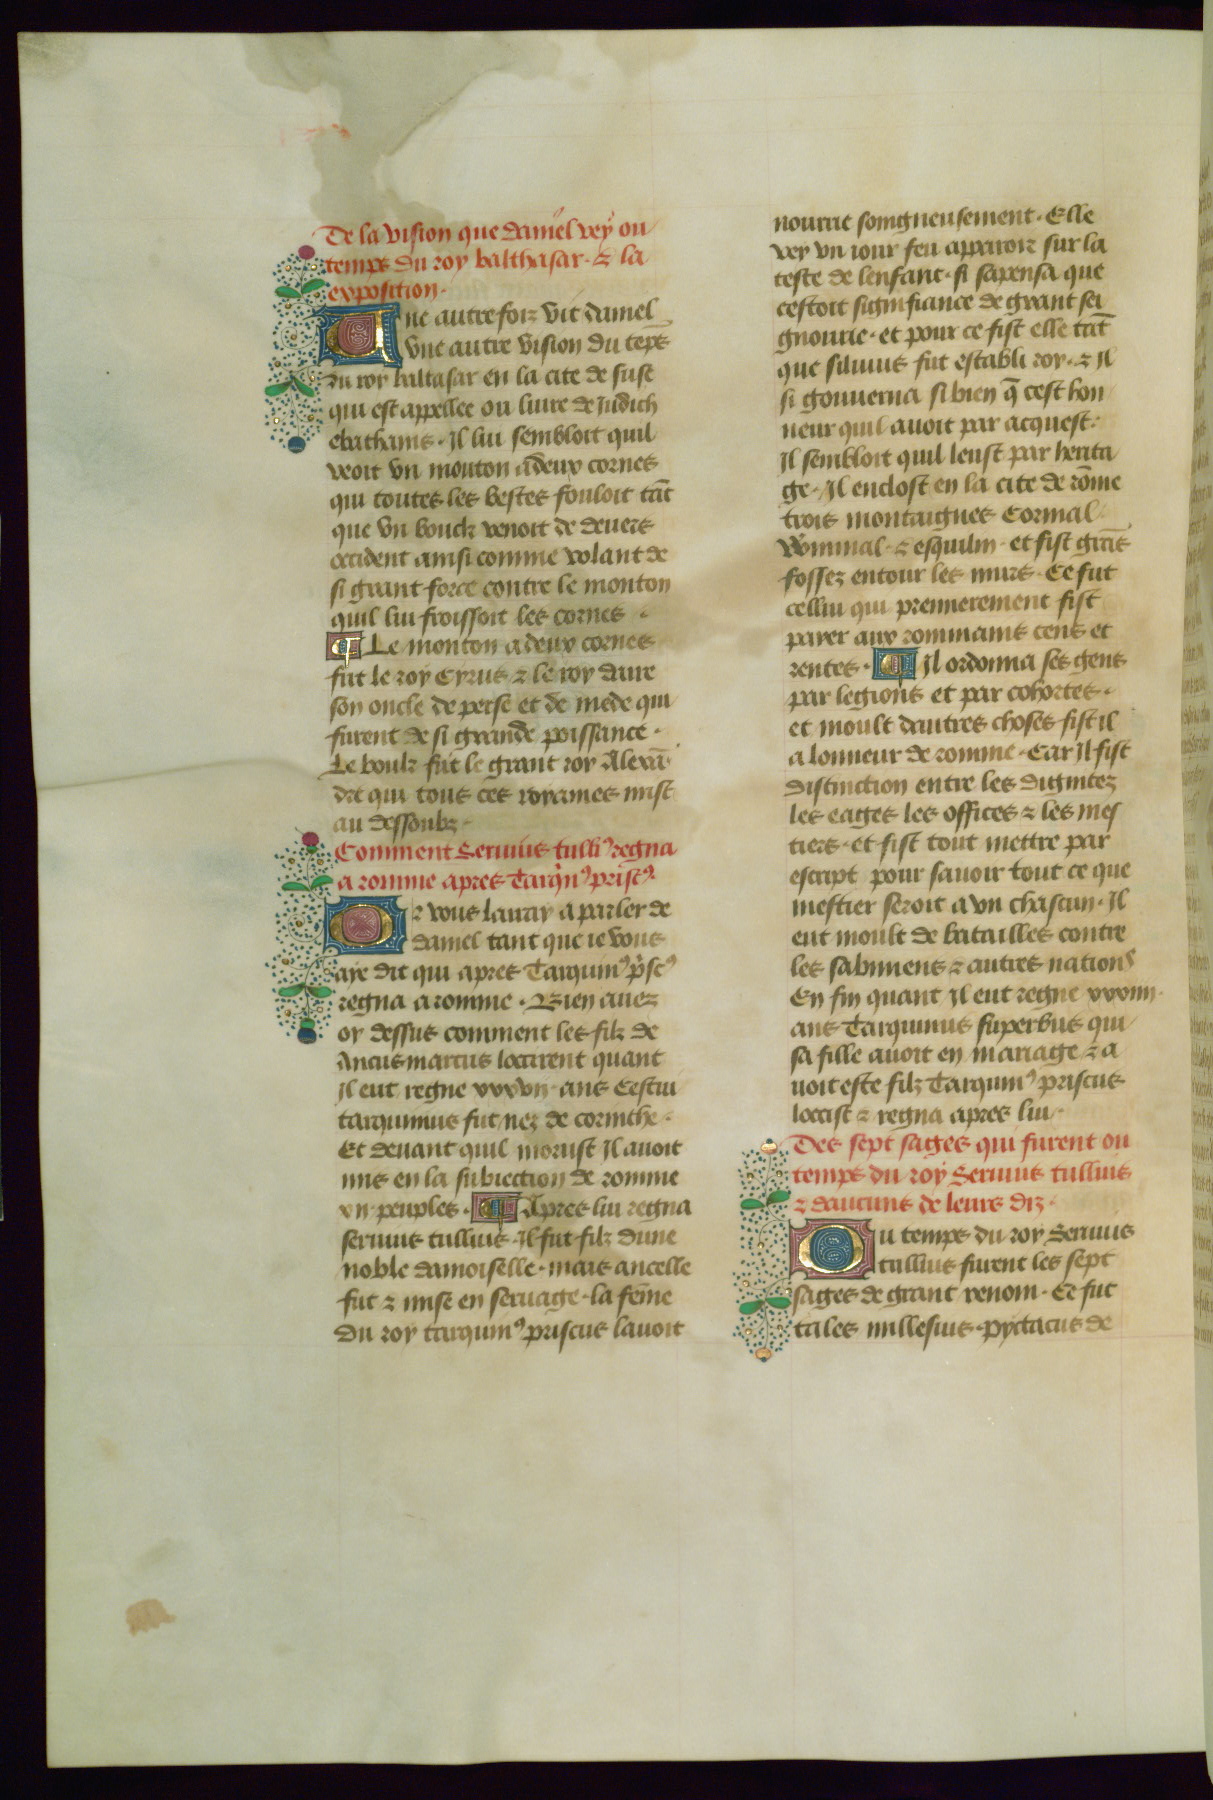 De la vision que daniel vey ou
temps du roy balthasar · ⁊ la
exposition ·
Une autre foiz vit daniel
vne autre vision du tēps
du roy baltasar en la cite de suse
qui est appellee ou liure de Iudich
ebathanis · Il lui sembloit quil
veoit vn mouton a deux cornes
qui toutes les bestes fouloit tāt
que vn bouck venoit de deuers
occident ainsi comme volant de
si grant force contre le monton
quil lui froissoit les cornes ·
Le monton a deux cornes
fut le roy Cyrus ⁊ le roy daire
son oncle de perse et de mede qui
furent de si grande poissance ·
Le bouk fut le grant roy Alexā
dre qui tous ces royames mist
au dessoubz ·
Comment Seruius tulliꝰ regna
a romme apres Tarqͥnꝰ prisᷤcꝰ
Or vous lairay a parler de
daniel tant que ie vous
aye dit qui apres Tarquinꝰ pͥscꝰ
regna a romme · Bien auez
oy dessus comment les filz de
Ancus marcus loccirent quant
Il eut regne xxxvii · ans Cestui
tarquinius fut nez de corinthe ·
Et deuant quil morust Il auoit
mis en la subiection de romme
xii · peuples · Apres lui regna
seruius tullius · Il fut filz dune
noble damoiselle · mais ancelle
fut ⁊ mise en seruage · la fēme
du roy tarquinꝰ priscus lauoit
nourrit soingneusement · Elle
vey vn iour feu apparoir sur la
teste de lenfant · si sapensa que
cestoit signifiance de grant sei
gnourie · et pour ce fist elle tāt
que siluius fut establi roy · ⁊ Il
si gouuerna si bien q̄ cest hon
neur quil auoit par acquest ·
Il sembloit quil leust par herita
ge · Il enclost en la cite de rōme
trois montaignes Cormal
Vyminal · ⁊ esquilin · et fist grās
fossez entour les murs · Ce fut
cellui qui premierement fist
payer aux rommains cens et
rentes · Il ordonna ses gens
par legions et par cohortes ·
et moult dautres choses fist il
a lonneur de romme · Car Il fist
distinction entre les dignitez
les eages les offices ⁊ les mes
tiers · et fist tout mettre par
escript pour sauoir tout ce que
mestier seroit a vn chascun · Il
eut moult de batailles contre
les sabiniens ⁊ autres nations
En fin quant Il eut regne xxxiiii ·
ans Tarquinus superbus qui
sa fille auoit en mariage ⁊ a
uoit este filz Tarquinꝰ priscus
loccist ⁊ regna apres lui ·
Des sept sages qui furent ou
temps du roy Seruius tullius
⁊ daucuns de leurs diz ·
Ou temps du roy Seruius
tullius furent les sept
sages de grant renom · Ce fut
tales millesius · pyctacus de